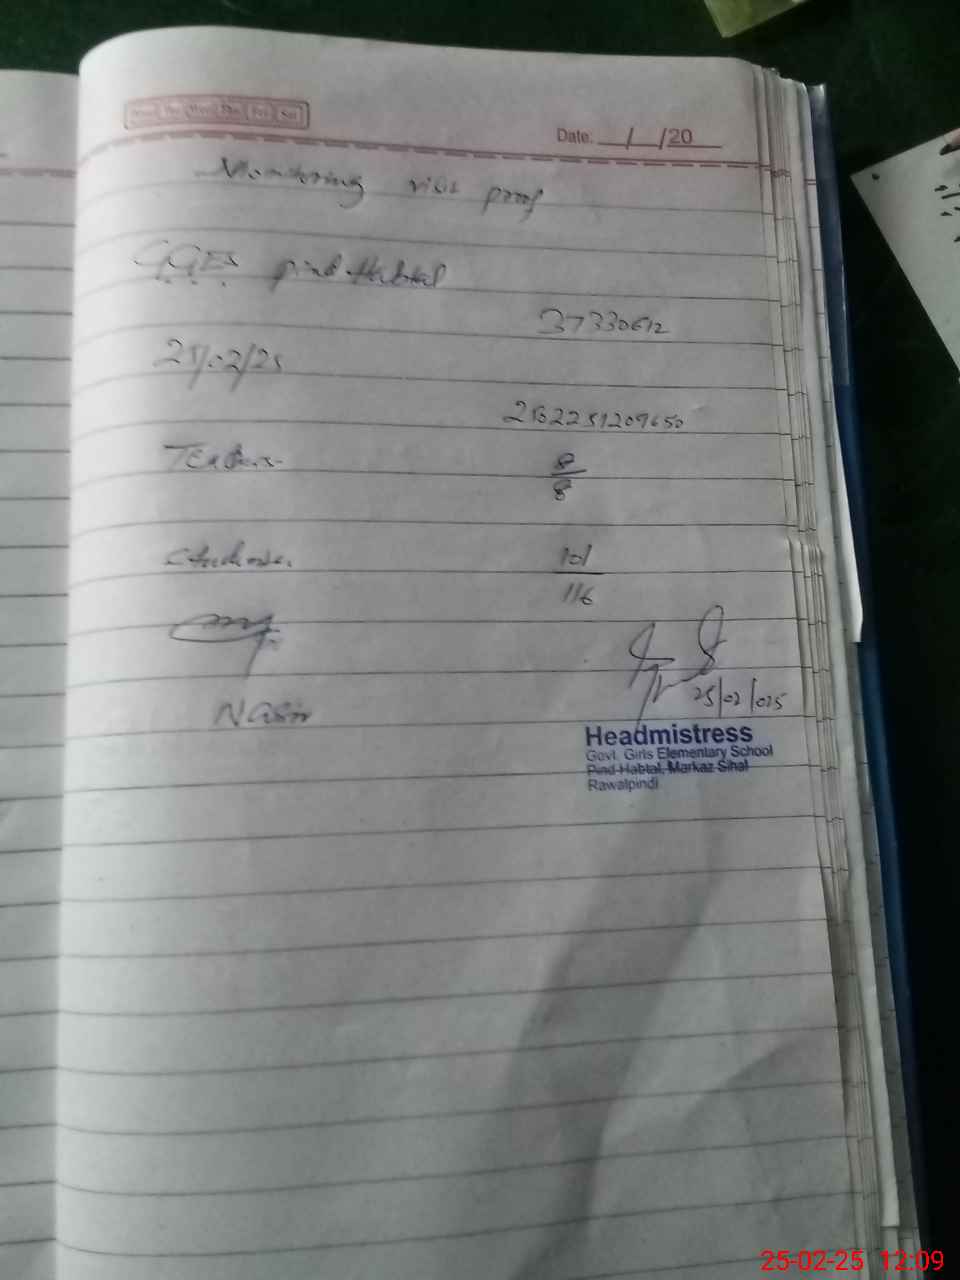 Mon Tue Wed Thu Fri Sat
Date: / /20
Monitoring visit proof
GGES Pind Habtal
37330612
25/02/25
Teachers
8
8
Students
101
116
Nasir
25/02/025
Headmistress
Govt. Girls Elementary School
Pind Habtal, Markaz Sihal
Rawalpindi
25-02-25 12:09